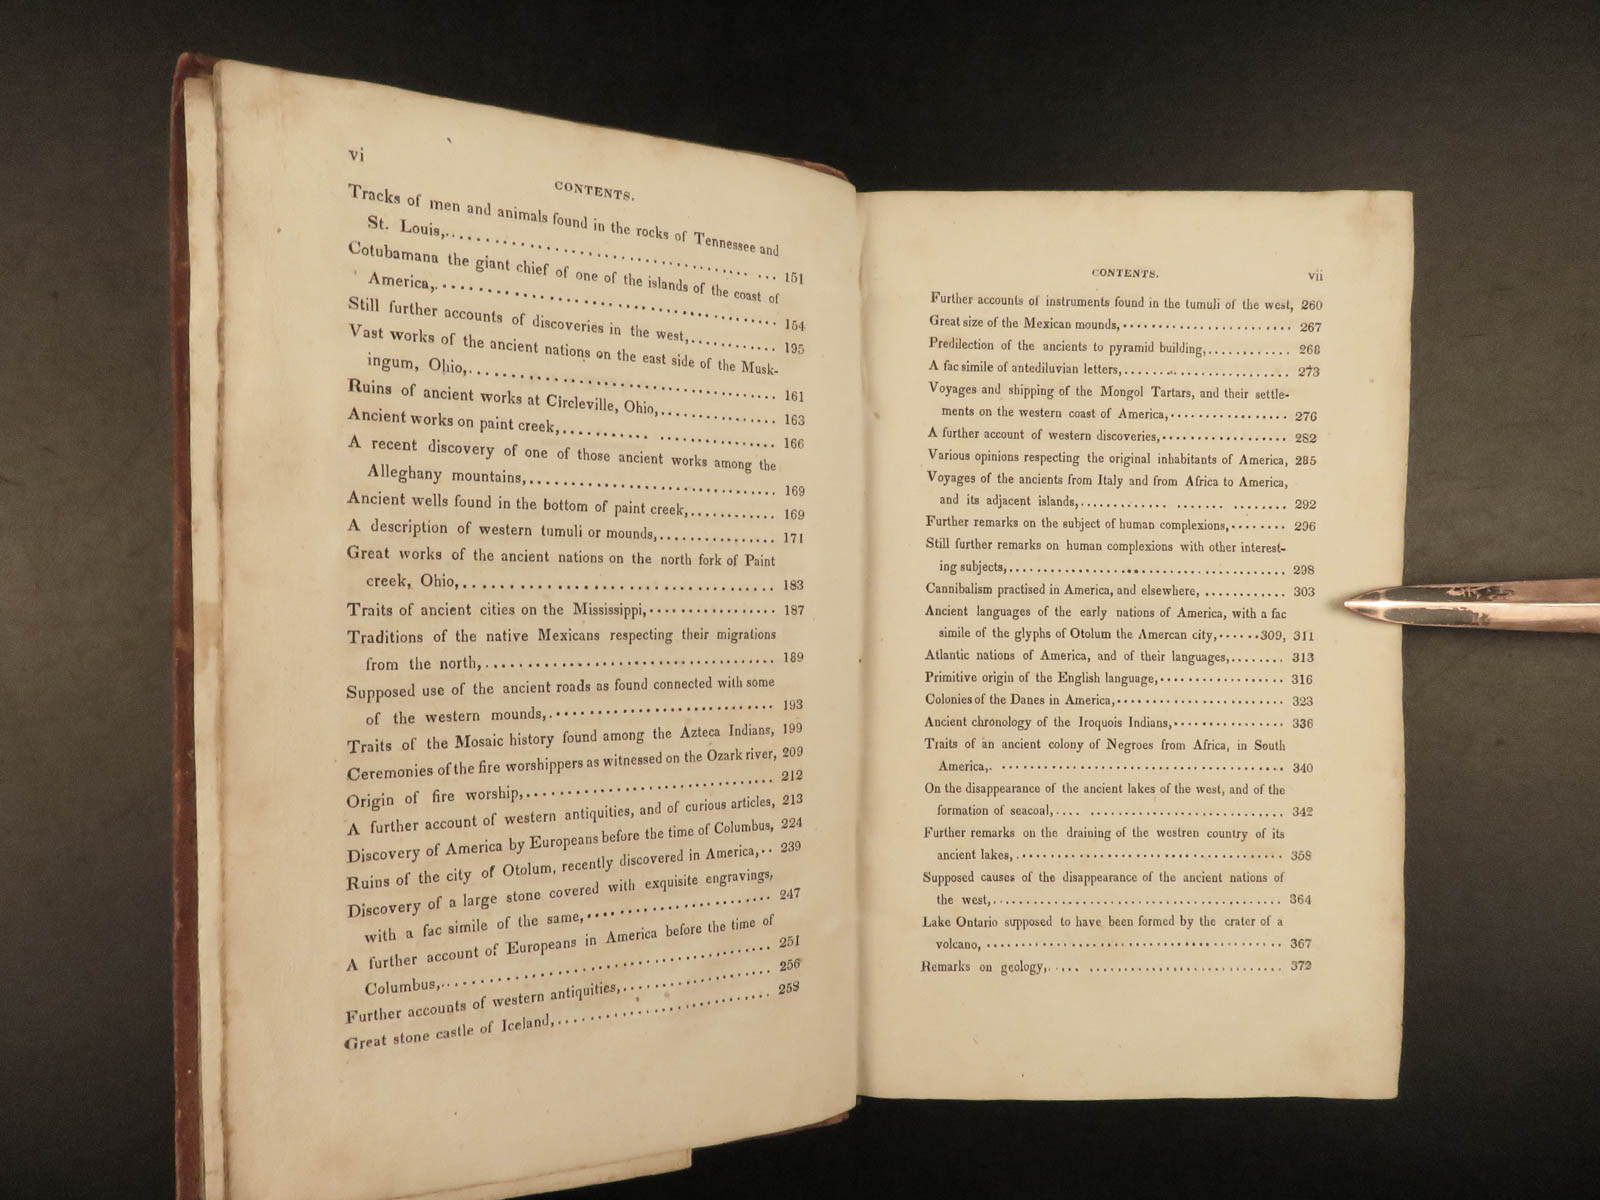 vi
CONTENTS.
Tracks of men and animals found in the rocks of Tennessee and
St. Louis,........................................ 151
Cotubamana the giant chief of one of the islands of the coast of
America,........................................ 154
Still further accounts of discoveries in the west,............ 195
Vast works of the ancient nations on the east side of the Musk-
ingum, Ohio,........................................ 161
Ruins of ancient works at Circleville, Ohio,............... 163
Ancient works on paint creek,.......... .............. 166
A recent discovery of one of those ancient works among the
Alleghany mountains,............................... 169
Ancient wells found in the bottom of paint creek,............ 169
A description of western tumuli or mounds,................ 171
Great works of the ancient nations on the north fork of Paint
creek, Ohio,...................................... 183
Traits of ancient cities on the Mississippi,................ 187
Traditions of the native Mexicans respecting their migrations
from the north,.................................... 189
Supposed use of the ancient roads as found connected with some
of the western mounds,............................. 193
Traits of the Mosaic history found among the Azteca Indians, 199
Ceremonies of the fire worshippers as witnessed on the Ozark river, 209
Origin of fire worship,................................ 212
A further account of western antiquities, and of curious articles, 213
Discovery of America by Europeans before the time of Columbus, 224
Ruins of the city of Otolum, recently discovered in America,.. 239
Discovery of a large stone covered with exquisite engravings,
with a fac simile of the same,........................ 247
A further account of Europeans in America before the time of
Columbus,........................................ 251
Further accounts of western antiquities,.................. 256
Great stone castle of Iceland,.......................... 258
CONTENTS.
vii
Further accounts of instruments found in the tumuli of the west, 260
Great size of the Mexican mounds,........................ 267
Predilection of the ancients to pyramid building,............ 268
A fac simile of antediluvian letters,........................ 273
Voyages and shipping of the Mongol Tartars, and their settle-
ments on the western coast of America,................. 276
A further account of western discoveries,.................. 282
Various opinions respecting the original inhabitants of America, 285
Voyages of the ancients from Italy and from Africa to America,
and its adjacent islands,............ ....... ........ 292
Further remarks on the subject of human complexions,........ 296
Still further remarks on human complexions with other interest-
ing subjects,........................................ 298
Cannibalism practised in America, and elsewhere, ............ 303
Ancient languages of the early nations of America, with a fac
simile of the glyphs of Otolum the Amercan city,......309, 311
Atlantic nations of America, and of their languages,........ 313
Primitive origin of the English language,.................. 316
Colonies of the Danes in America,........................ 323
Ancient chronology of the Iroquois Indians,................ 336
Traits of an ancient colony of Negroes from Africa, in South
America,. ........................................ 340
On the disappearance of the ancient lakes of the west, and of the
formation of seacoal,.... ............................ 342
Further remarks on the draining of the westren country of its
ancient lakes,...................................... 358
Supposed causes of the disappearance of the ancient nations of
the west,.......................................... 364
Lake Ontario supposed to have been formed by the crater of a
volcano, .......................................... 367
Remarks on geology,..... ............................ 372